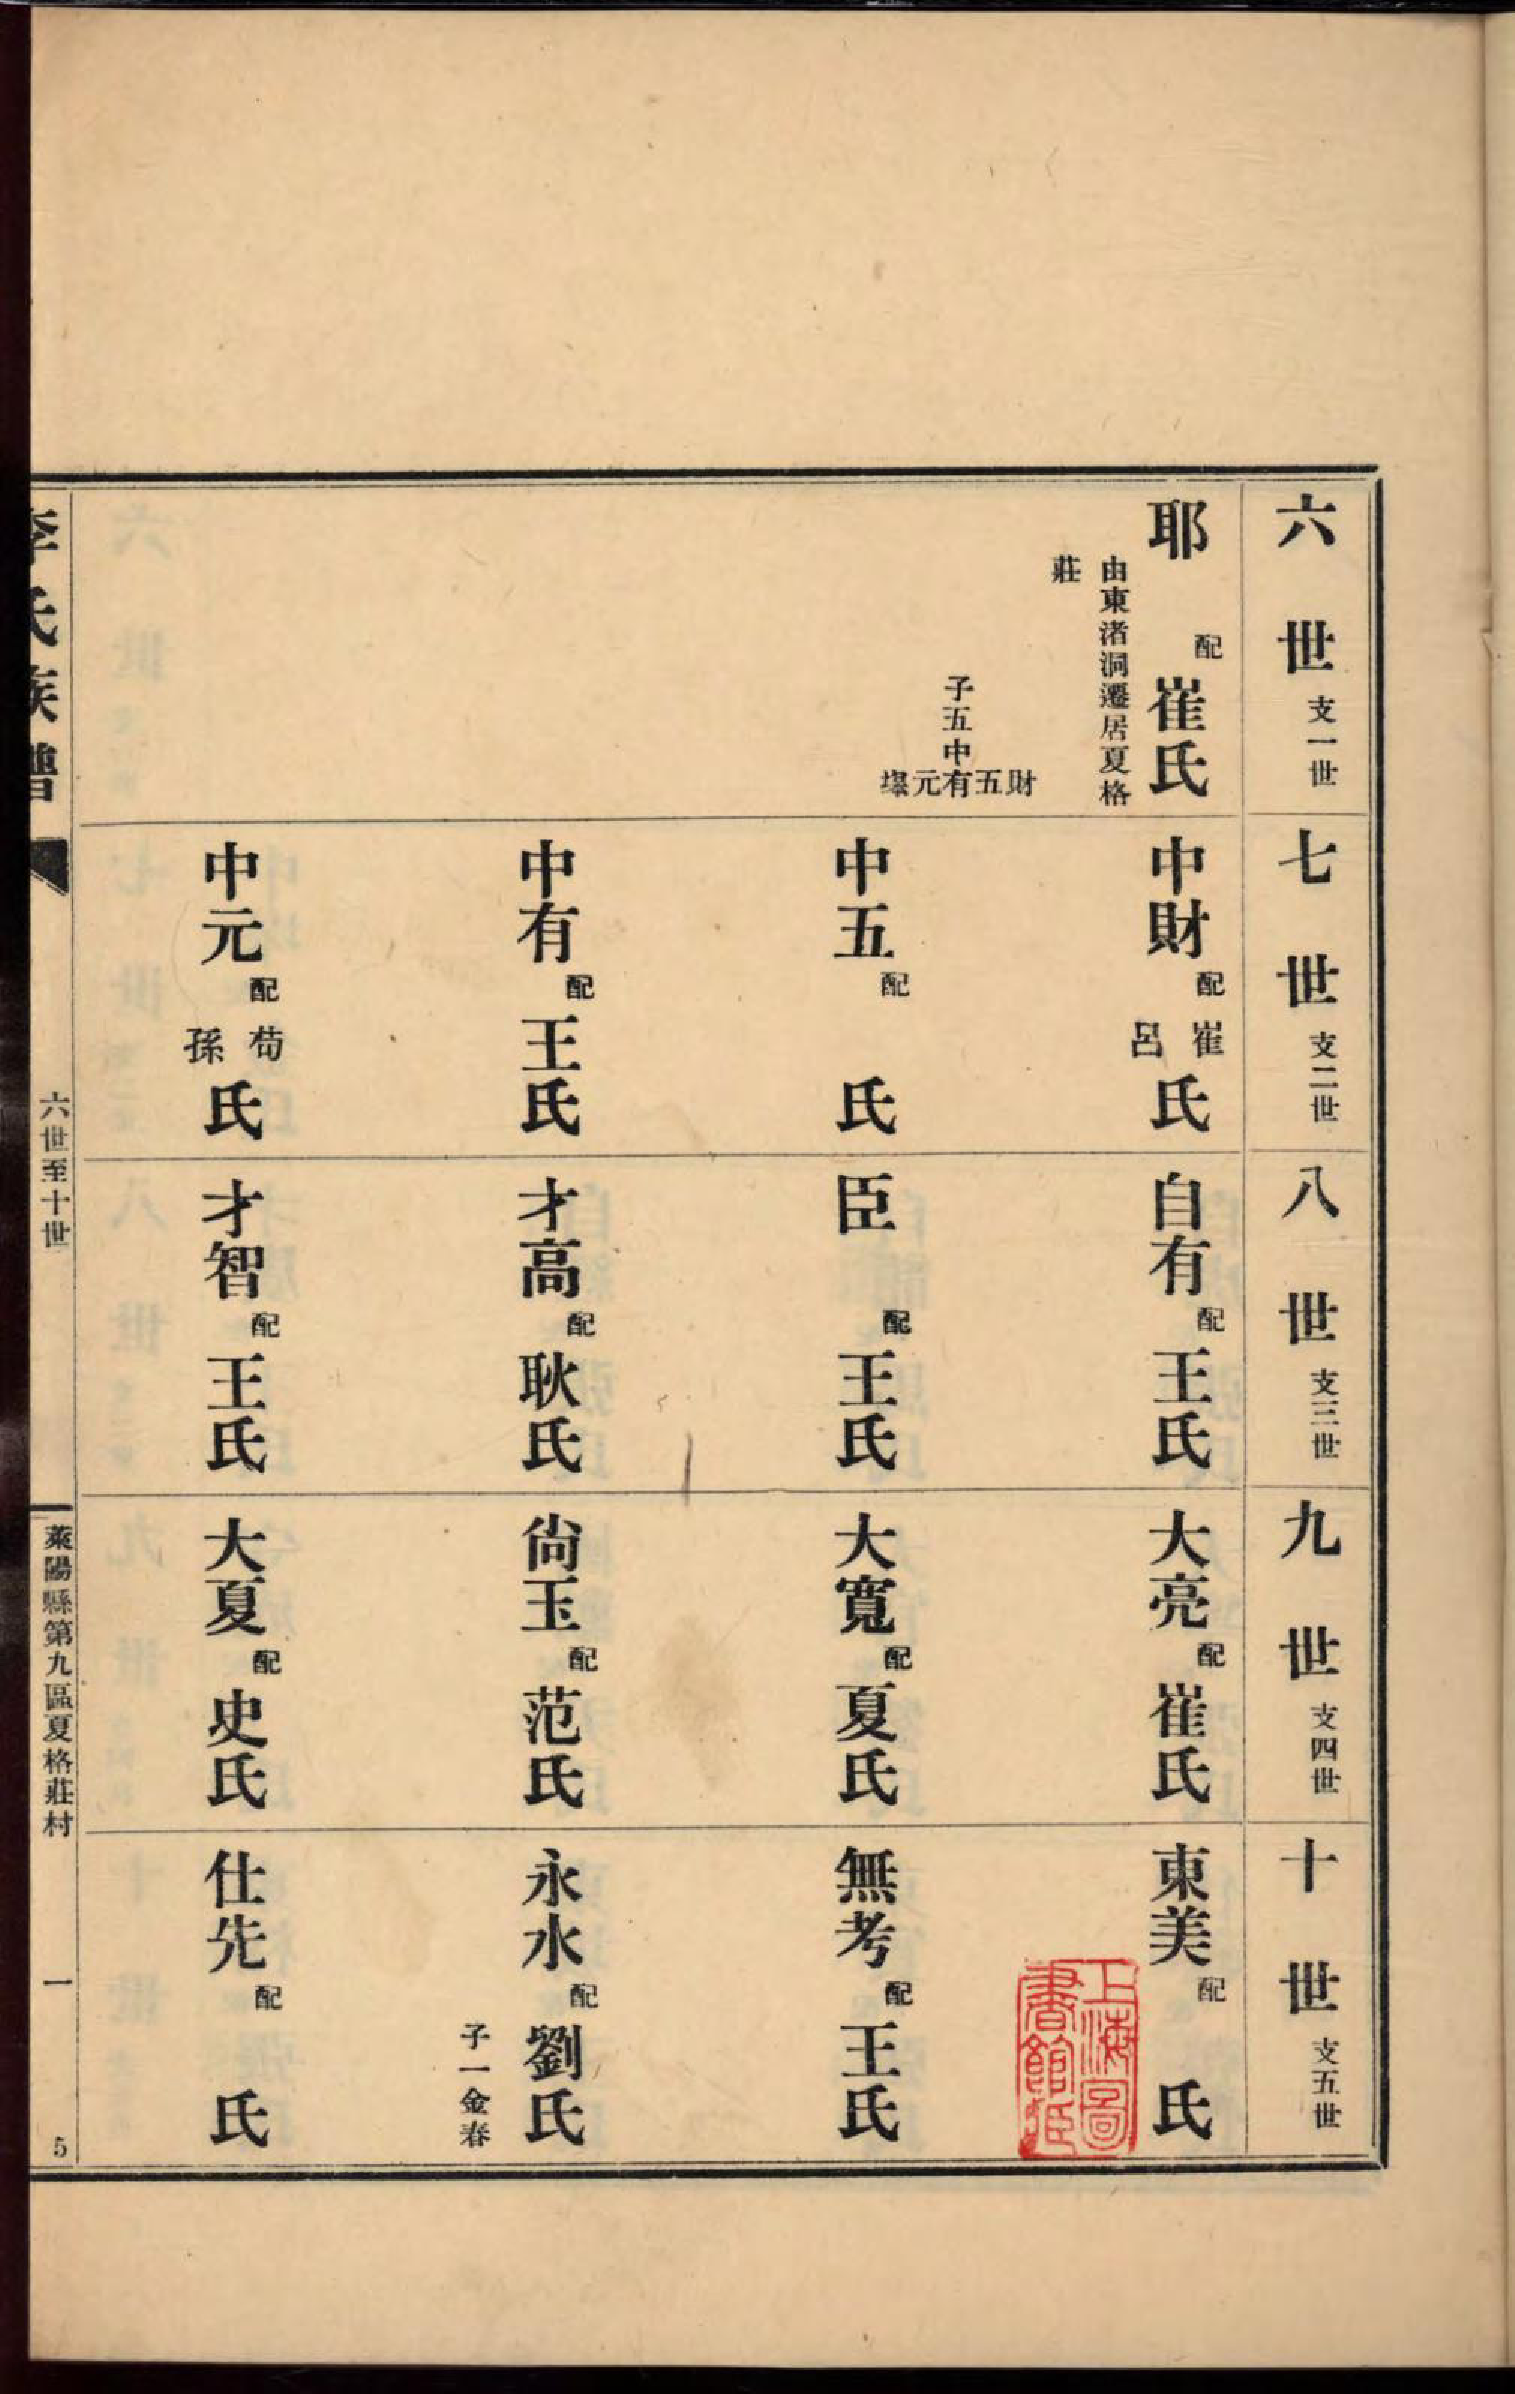 六世 支一世
七世 支二世
八世 支三世
九世 支四世
十世 支五世
耶 配崔氏
由東渚洞遷居夏格
莊
子五中
財五有元墚
中財 配崔呂氏
自有 配王氏
大亮 配崔氏
東美 配 氏
中五 配 氏
臣 配王氏
大寬 配夏氏
無考 配王氏
中有 配王氏
才高 配耿氏
尙玉 配范氏
永水 配劉氏
子一金春
中元 配荀孫氏
才智 配王氏
大夏 配史氏
仕先 配 氏
李氏族譜
六世至十世
萊陽縣第九區夏格莊村
一
5
上海圖
書館藏